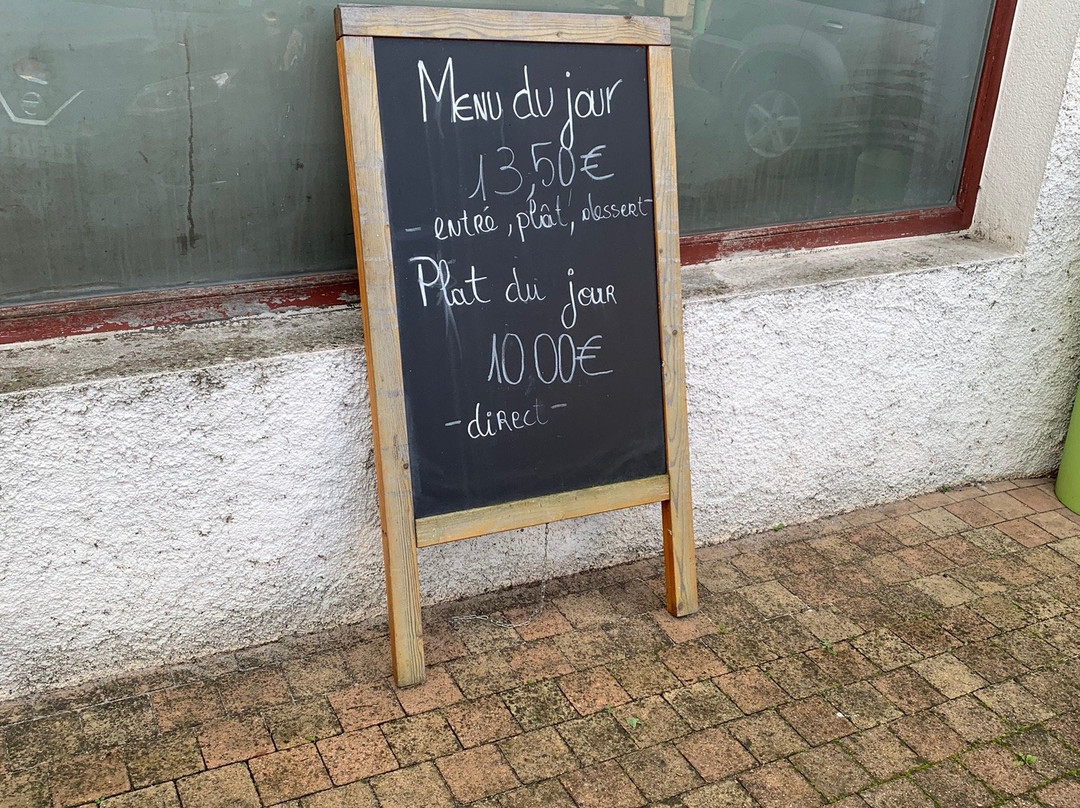 Menu du jour
13,50€
- entré, plât, dessert-
Plat du jour
10.00€
-direct-